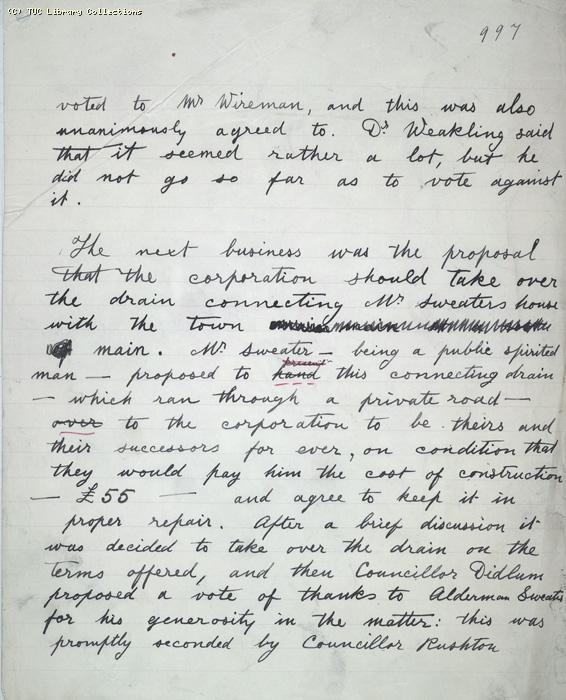 (C) TUC Library Collections
997
voted to Mr Wireman, and this was also
unanimously agreed to. Dr Weakling said
that it seemed rather a lot, but he
did not go so far as to vote against
it.
The next business was the proposal
that the corporation should take over
the drain connecting Mr Sweaters house
with the town
main. Mr Sweater — being a public spirited
present
man — proposed to hand this connecting drain
— which ran through a private road —
over to the corporation to be theirs and
their successors for ever, on condition that
they would pay him the cost of construction
— £55 — and agree to keep it in
proper repair. After a brief discussion it
was decided to take over the drain on the
terms offered, and then Councillor Didlum
proposed a vote of thanks to Alderman Sweater
for his generosity in the matter: this was
promptly seconded by Councillor Rushton